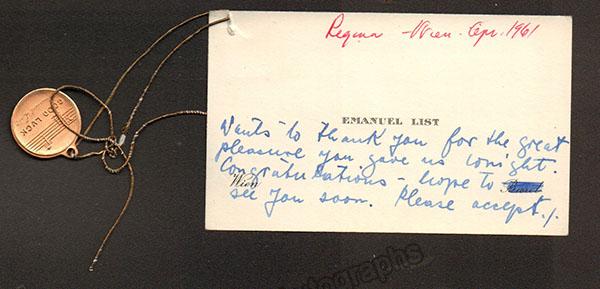 Regina - Wien. Apr. 1961
EMANUEL LIST
Wants to thank you for the great
pleasure you gave us tonight.
Congratulations - hope to
Wien
see you soon. Please accept ./.
GOOD LUCK
autographs